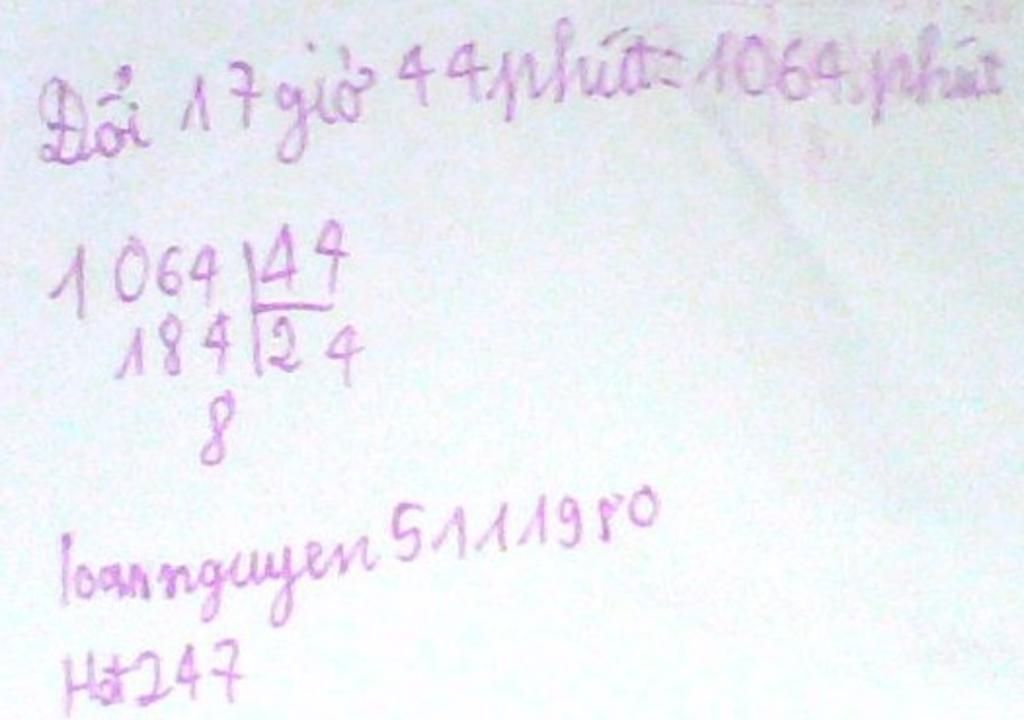 Đổi 17 giờ 44 phút = 1064 phút
1064 44
184 24
8
loannguyen5111980
Hot247